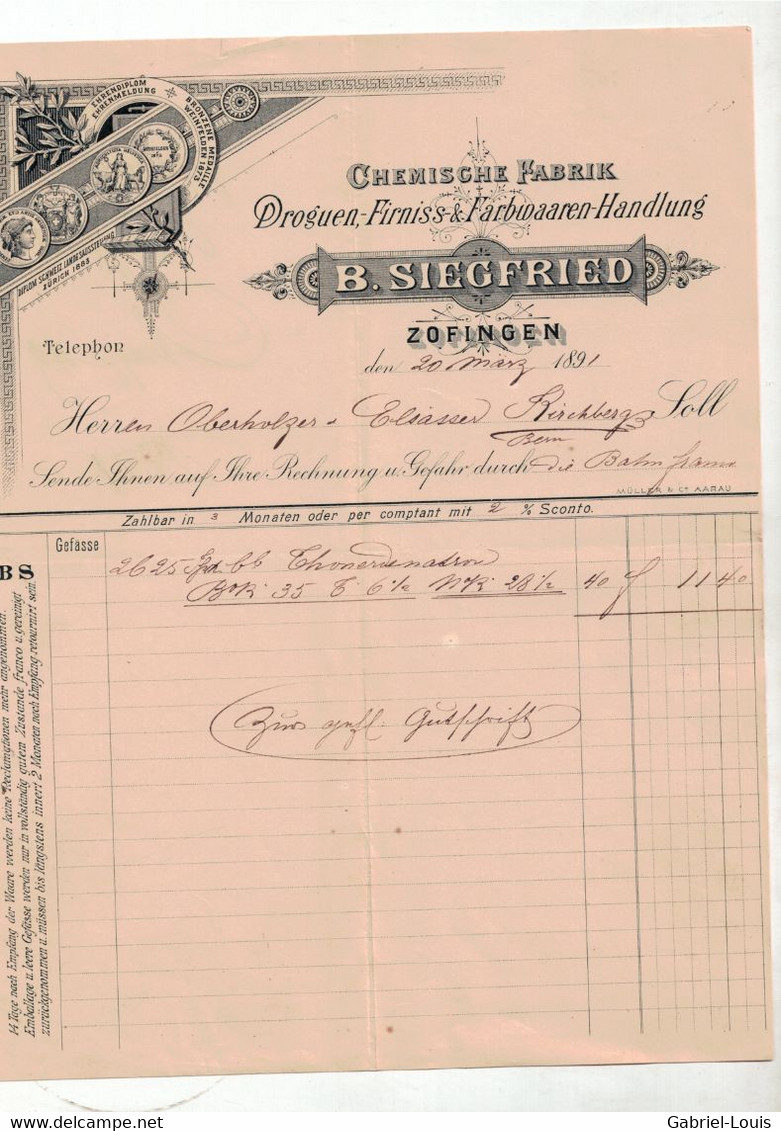 EHRENDIPLOM
EHRENMELDUNG
BRONZENE MEDAILLE
WEINFELDEN 1873
DIPLOM SCHWEIZ. LANDESAUSSTELLUNG
ZÜRICH 1883
CHEMISCHE FABRIK
Droguen-, Firniss- & Farbwaaren-Handlung
B. SIEGFRIED
ZOFINGEN
Telephon
den 20 März 1891
Herren Oberholzer & Elsässer Kirchberg Soll
Bern
Sende Ihnen auf Ihre Rechnung u. Gefahr durch die Bahn franco
MÜLLER & Cᵒ AARAU
Zahlbar in 3 Monaten oder per comptant mit 2 % Sconto.
Gefässe
BS
2625 bb Thonerdenatron
Bº K: 35 T. 6 ½ Nº K: 28 ½ 40 11 40
Zur gefl. Gutschrift
14 Tage nach Empfang der Waare werden keine Reclamationen mehr angenommen.
Emballage u. leere Gefässe werden nur in vollständig gutem Zustande franco u. gereinigt
zurückgenommen u. müssen bis längstens innert 2 Monaten nach Empfang retournirt sein.
delcampe.net
Gabriel-Louis